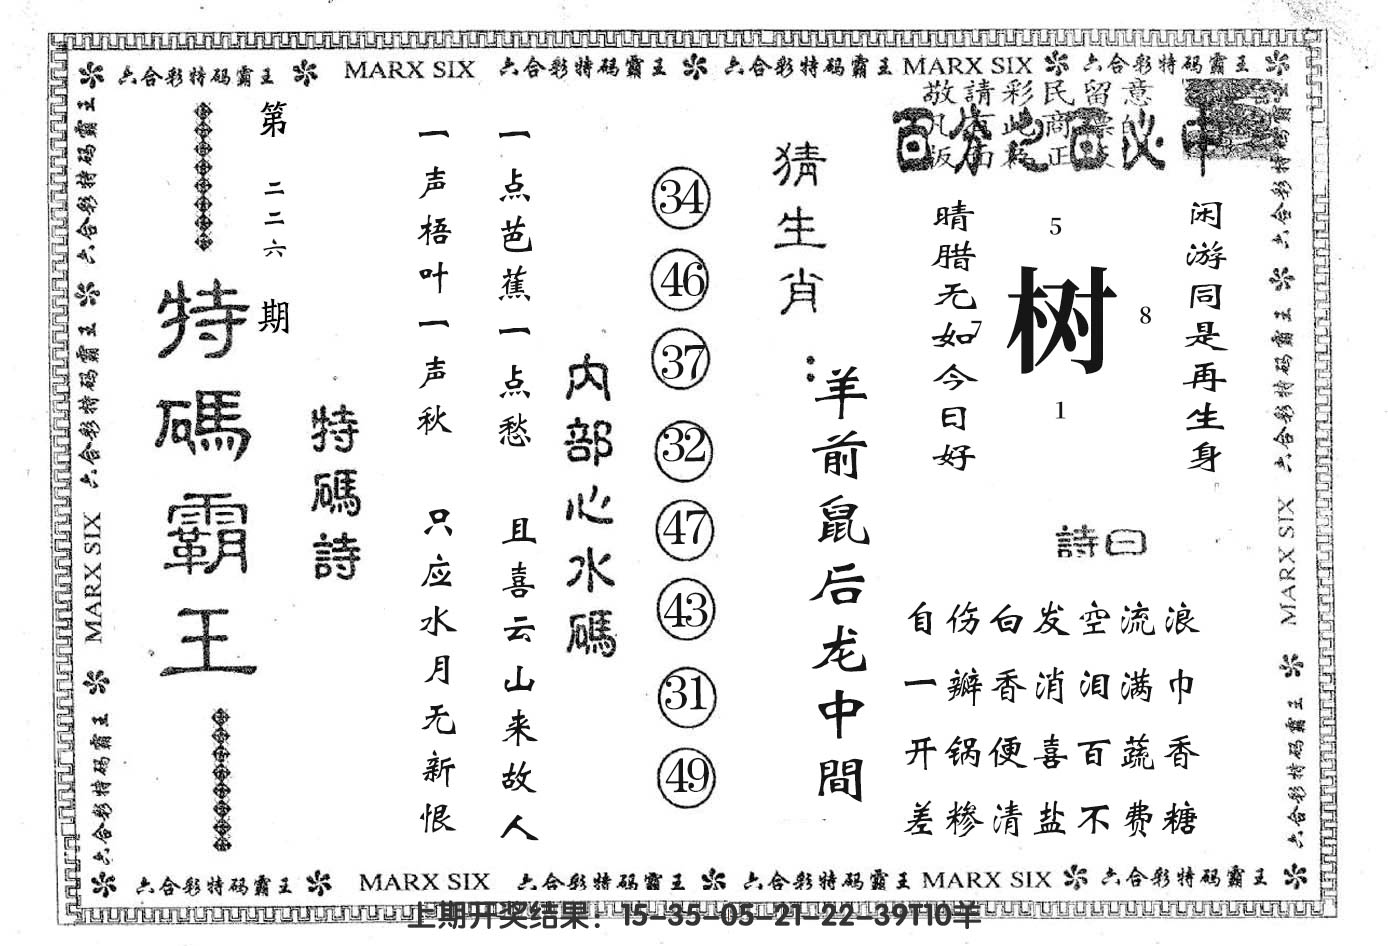 六合彩特码霸王 MARX SIX 六合彩特码霸王 六合彩特码霸王 MARX SIX 六合彩特码霸王
六合彩特码霸王 六合彩特码霸王 MARX SIX 六合彩特码霸王
第二二六期
特碼霸王
特碼詩
一声梧叶一声秋
一点芭蕉一点愁
只应水月无新恨
且喜云山来故人
内部心水碼
34
46
37
32
47
43
31
49
猜生肖：
羊前鼠后龙中間
敬請彩民留意
百分之百必中
晴腊无如今日好
闲游同是再生身
5
7
树
8
1
詩曰
自伤白发空流浪
一瓣香消泪满巾
开锅便喜百蔬香
差糁清盐不费糖
六合彩特码霸王 六合彩特码霸王 MARX SIX 六合彩特码霸王
六合彩特码霸王 MARX SIX 六合彩特码霸王 六合彩特码霸王 MARX SIX 六合彩特码霸王
上期开奖结果：15-35-05-21-22-39T10羊